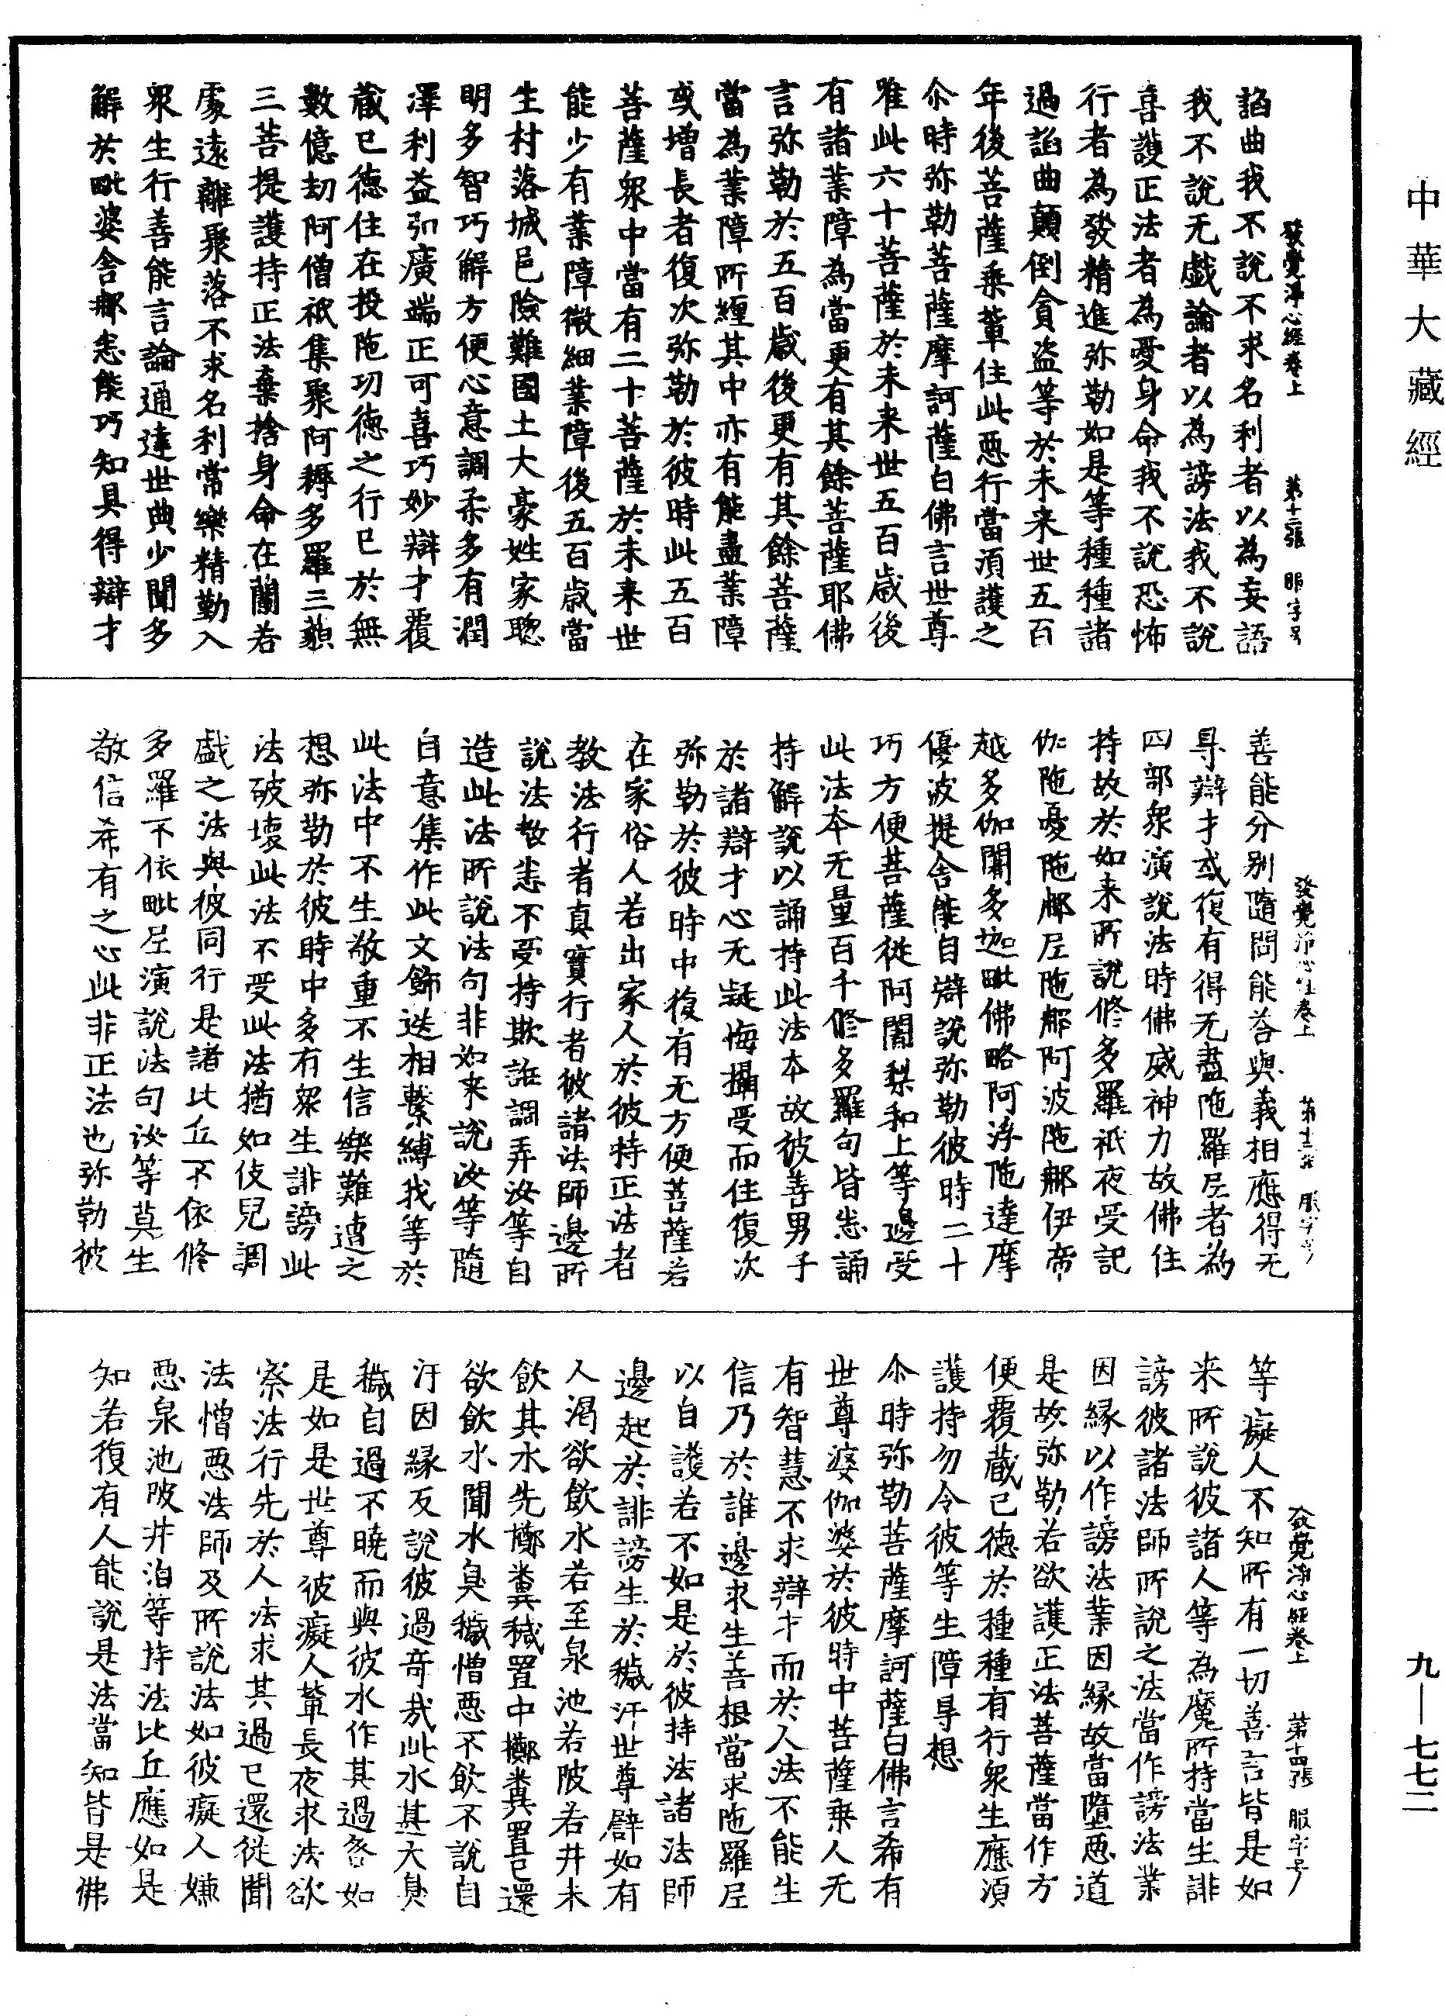 中華大藏經
發覺淨心經卷上 第十二張 服字号
諂曲我不說不求名利者以為妄語
我不說无戲論者以為謗法我不說
喜護正法者為愛身命我不說恐怖
行者為發精進弥勒如是等種種諸
過諂曲顛倒貪盗等於未来世五百
年後菩薩乗輩住此惡行當須護之
尒時弥勒菩薩摩訶薩白佛言世尊
唯此六十菩薩於未来世五百歲後
有諸業障為當更有其餘菩薩耶佛
言弥勒於五百歲後更有其餘菩薩
當為業障所纏其中亦有能盡業障
或增長者復次弥勒於彼時此五百
菩薩衆中當有二十菩薩於未来世
能少有業障微細業障後五百歲當
生村落城邑險難國土大豪姓家聰
明多智巧解方便心意調柔多有潤
澤利益弘廣端正可喜巧妙辯才覆
藏已德住在投陁功德之行已於無
數億劫阿僧祇集聚阿耨多羅三藐
三菩提護持正法棄捨身命在蘭若
處遠離聚落不求名利常樂精勤入
衆生行善能言論通達世典少聞多
解於毗婆舍那悉能巧知具得辯才
發覺淨心經卷上 第十三張 服字号
善能分别隨問能荅與義相應得无
㝵辯才或復有得无盡陁羅尼者為
四部衆演說法時佛威神力故佛住
持故於如来所說修多羅祇夜受記
伽陁憂陁那尼陁那阿波陁那伊帝
越多伽闍多伽毗佛略阿浮陁達摩
優波提舍能自辯說弥勒彼時二十
巧方便菩薩從阿闍梨和上等邊受
此法本无量百千修多羅句皆悉誦
持解說以誦持此法本故彼善男子
於諸辯才心无疑悔攝受而住復次
弥勒於彼時中復有无方便菩薩若
在家俗人若出家人於彼持正法者
教法行者真實行者彼諸法師邊所
說法教悉不受持欺誑調弄汝等自
造此法所說法句非如来說汝等隨
自意集作此文飾迭相繫縛我等於
此法中不生敬重不生信樂難遭之
想弥勒於彼時中多有衆生誹謗此
法破壞此法不受此法猶如伎兒調
戲之法與彼同行是諸比丘不依修
多羅不依毗尼演說法句汝等莫生
敬信希有之心此非正法也弥勒彼
發覺淨心經卷上 第十四張 服字号
等癡人不知所有一切善言皆是如
来所說彼諸人等為魔所持當生誹
謗彼諸法師所說之法當作謗法業
因緣以作謗法業因緣故當墮惡道
是故弥勒若欲護正法菩薩當作方
便覆藏已德於種種有行衆生應須
護持勿令彼等生障㝵想
尒時弥勒菩薩摩訶薩白佛言希有
世尊婆伽婆於彼時中菩薩乗人无
有智慧不求辯才而於人法不能生
信乃於誰邊求生善根當求陁羅尼
以自護若不如是於彼持法諸法師
邊起於誹謗生於穢汙世尊譬如有
人渴欲飲水若至泉池若陂若井未
飲其水先擲糞穢置中擲糞置已還
欲飲水聞水臭穢憎惡不飲不說自
汙因緣反說彼過奇哉此水甚大臭
穢自過不曉而與彼水作其過咎如
是如是世尊彼癡人輩長夜求法欲
察法行先於人法求其過已還從聞
法憎惡法師及所說法如彼癡人嫌
惡泉池陂井泊等持法比丘應如是
知若復有人能說是法當知皆是佛
九—七七二